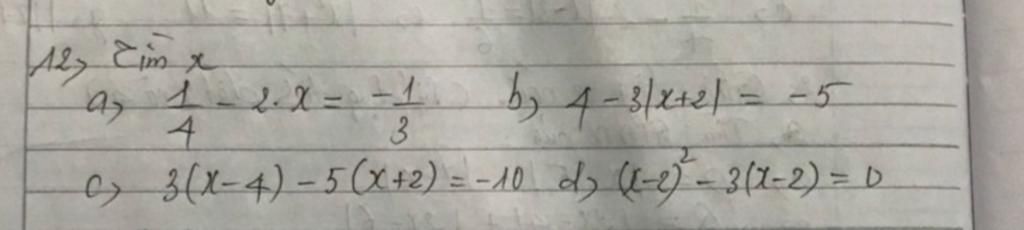 12, Tìm x
a, 1/4 - 2. x = -1/3 b, 4 - 3|x+2| = -5
c, 3(x-4) - 5(x+2) = -10 d, (x-2)² - 3(x-2) = 0